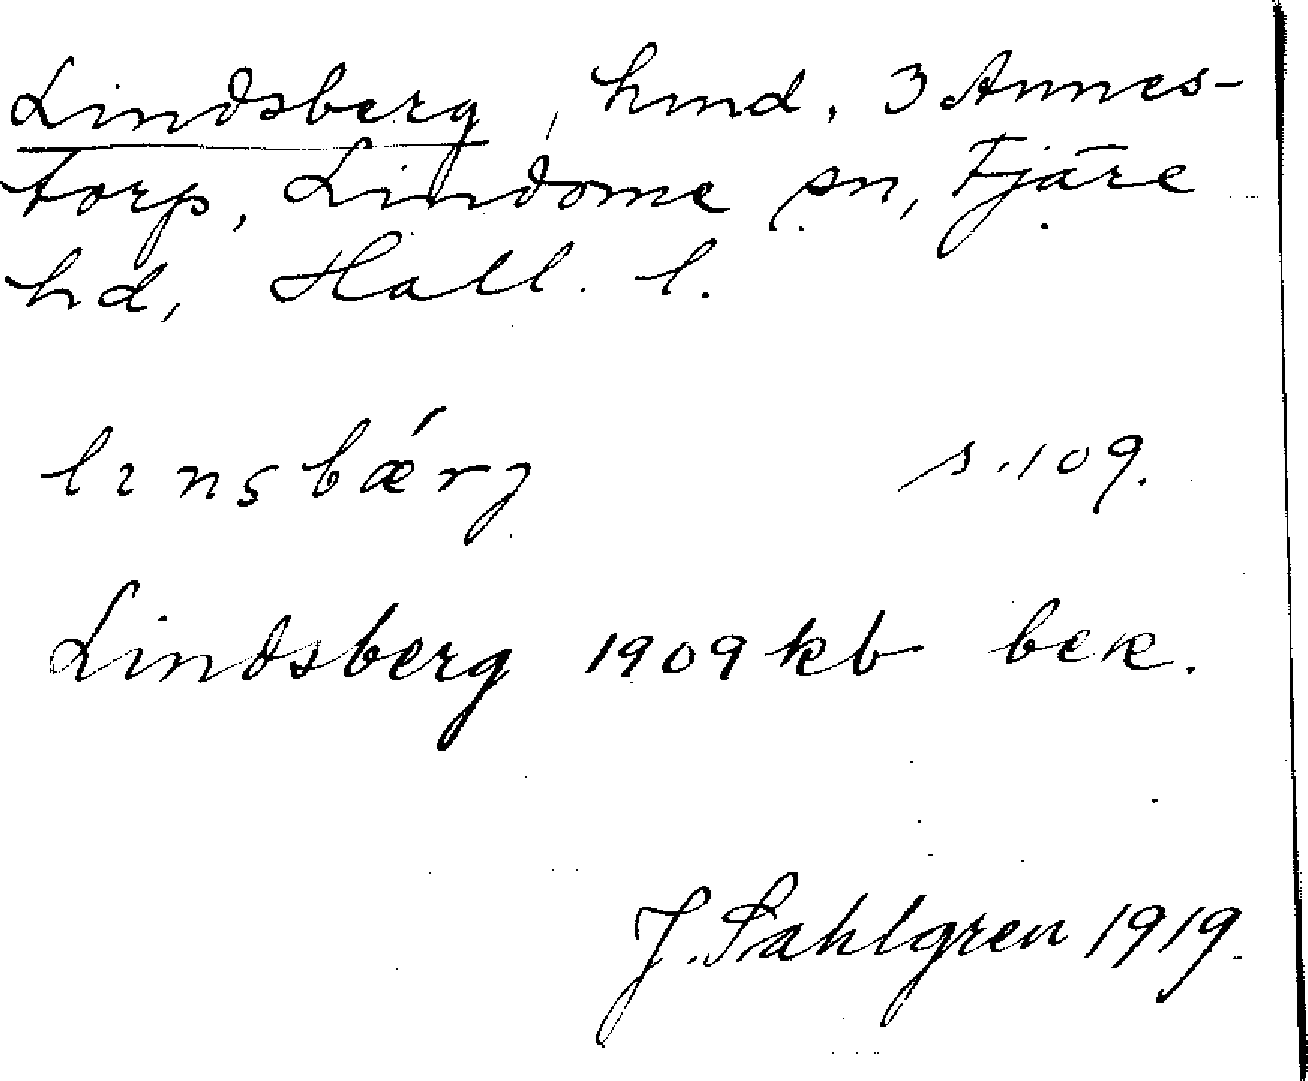 Lindsberg, hmd. 3 Annes-
torp, Lindome sn, Fjäre
hd, Hall. l.
lınsbǽrj s. 109.
Lindsberg 1909 kb bek.
J. Sahlgren 1919.